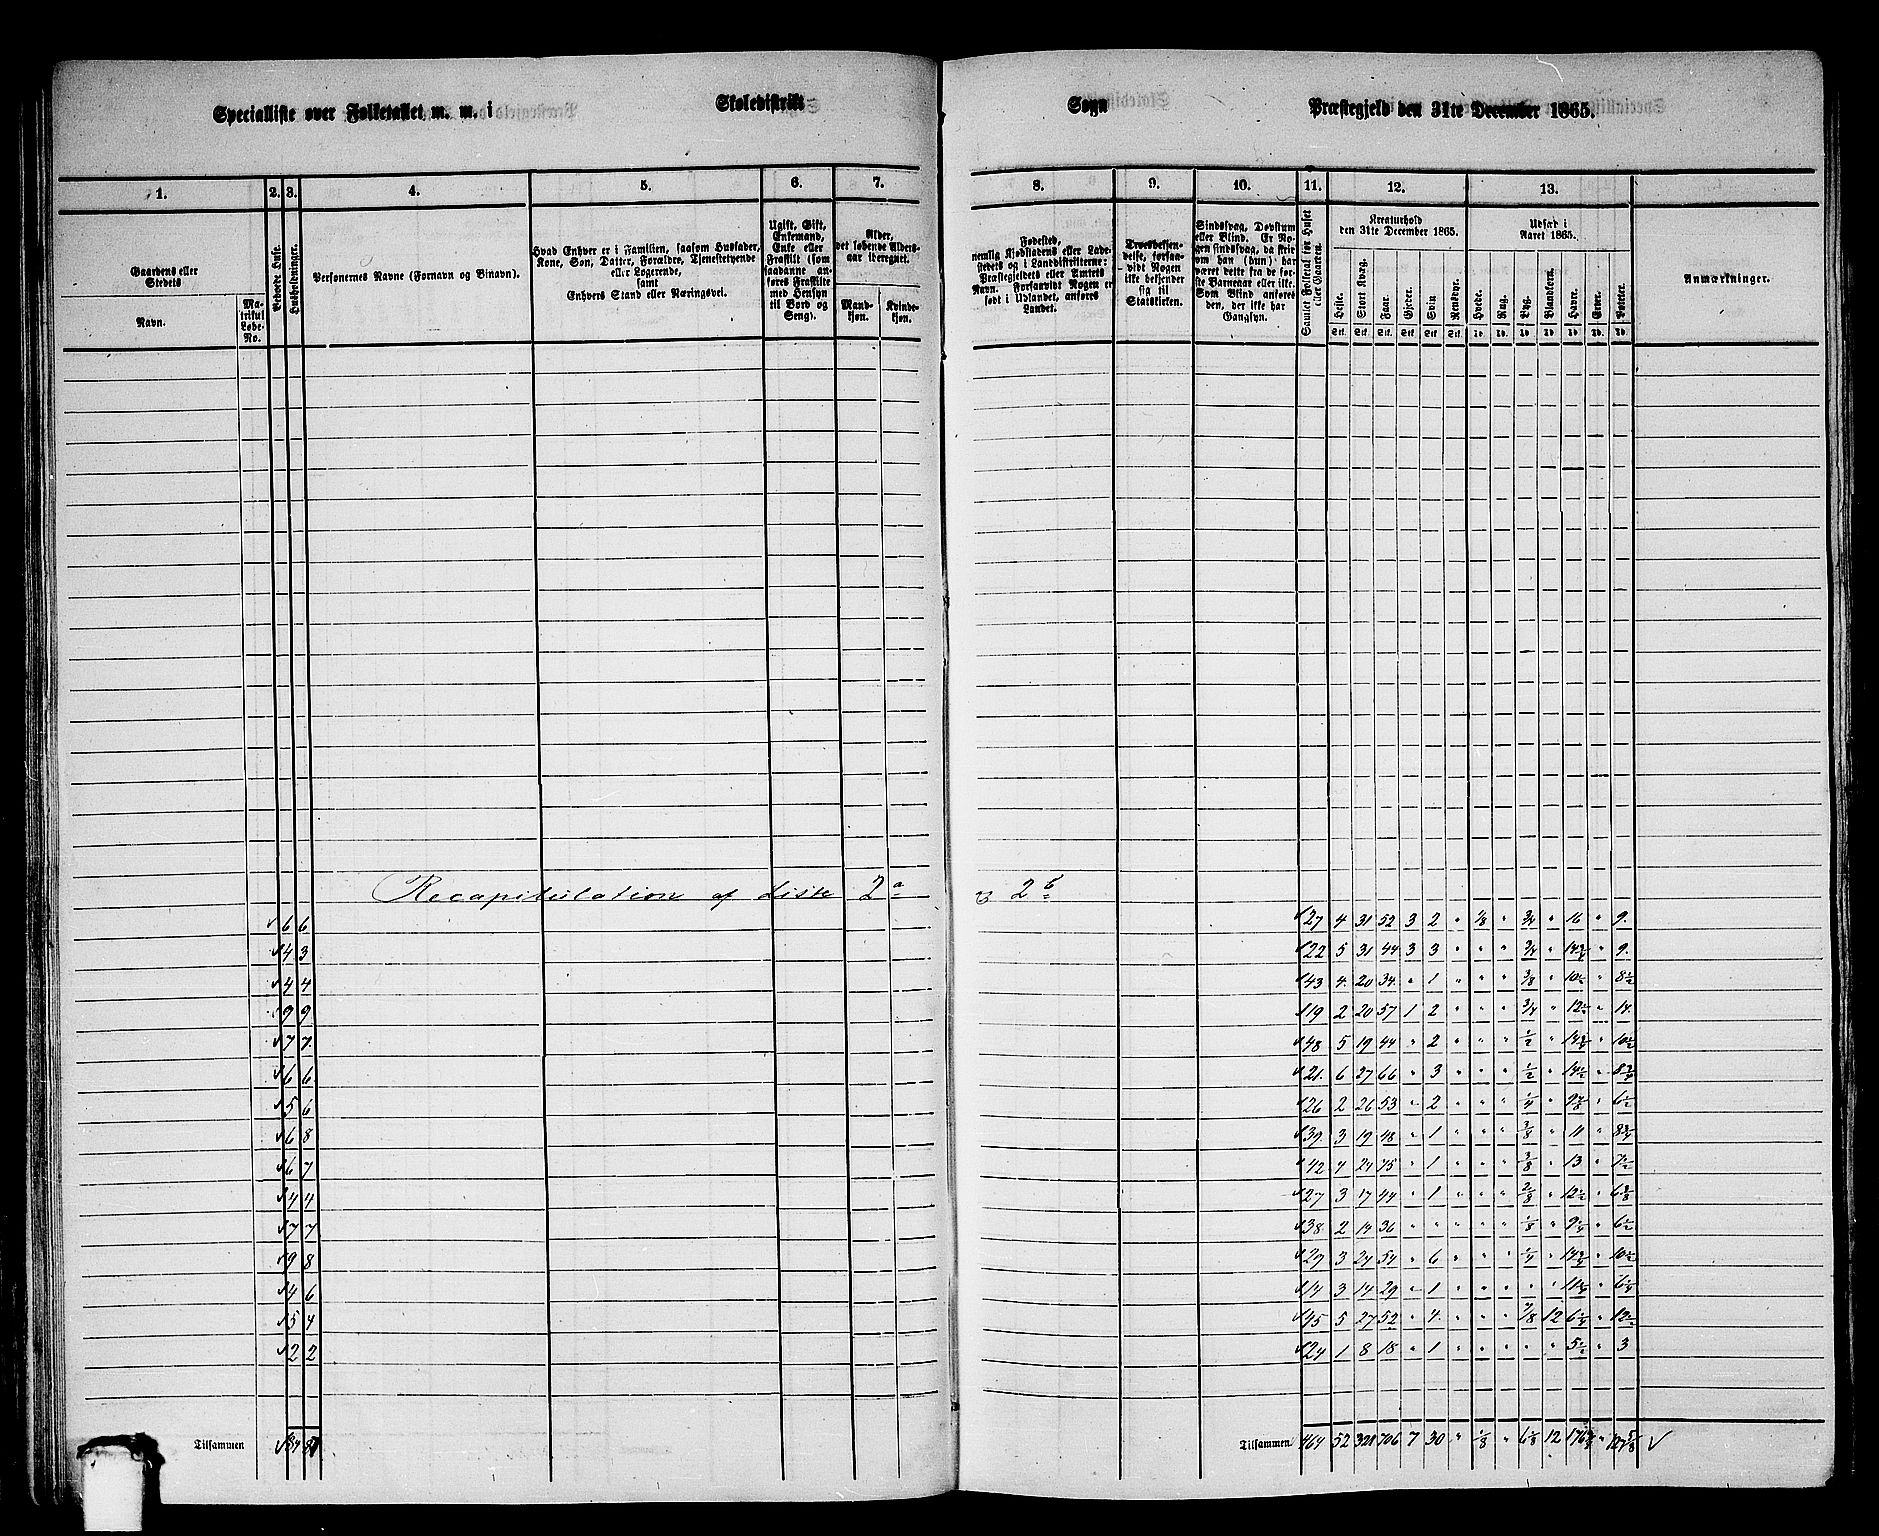 Specialliste over Folketallet m. m. i Skoledistrikt Sogn Præstegjeld den 31te December 1865.
1. 2. 3. 4. 5. 6. 7. 8. 9. 10. 11. 12. 13.
Gaardens eller Stedets
Navn.
Matrikul Løbe-No.
Beboede Huse.
Husholdninger.
Personernes Navne (Fornavn og Binavn).
Hvad Enhver er i Familien, saasom Husfader,
Kone, Søn, Datter, Forældre, Tjenestetyende
eller Logerende,
samt
Enhvers Stand eller Næringsvei.
Ugift, Gift,
Enkemand,
Enke eller
Fraskilt (som
saadanne anføres Fraskilte
med Hensyn
til Bord og
Seng).
Alder,
det løbende Alders-
aar iberegnet.
Mand-
kjøn.
Kvinde-
kjøn.
Fødested,
nemlig Kjøbstadens eller Lade-
stedets og i Landdistrikterne:
Præstegjeldets eller Amtets
Navn. Forsaavidt Nogen er
født i Udlandet, anføres
Landet.
Troesbekjen-
delse, forsaa-
vidt Nogen
ikke bekjender
sig til
Statskirken.
Sindssvag, Døvstum
eller Blind. Er No-
gen sindssvag, da skri-
ves om han (hun) har
været dette fra de før-
ste Barneaar eller ikke.
Som Blind anføres
den, der ikke har
Gangsyn.
Samlet Folketal for Huset
eller Gaarden.
Kreaturhold
den 31te December 1865.
Heste. Stort Kvæg. Faar. Gjeder. Svin Rensdyr.
Stk. Stk. Stk. Stk. Stk Stk.
Udsæd i
Aaret 1865.
Hvede. Rug. Byg. Blandkorn. Havre. Erter. Poteter.
Td. Td. Td. Td. Td. Td. Td.
Anmærkninger.
Recapitulation af Liste 2 a & 2 b
6 6 27 4 31 52 3 2 " 1/8 " 3/4 " 16 " 9.
4 3 22 5 31 44 3 3 " " " 3/4 " 14 3/4 " 9.
4 4 43 4. 20 34. " 1 " " " 3/8 " 10 1/2 " 8 1/2
9 9 19 2 20 57 1 2 " " " 3/4 " 12 1/2 " 14.
7 7. 48 5 19 44 " 2 " " " 1/2 " 14 3/4 " 10 1/2
6 6 21. 6 27 66 " 3 " " " 1/2 " 14 1/2 " 8 3/4
5 6 26 2 26 53 " 2 " " " 1/4 " 6 1/2
6 8 39. 3 19 48 " 1 " " " 3/8 " 11 " 8 3/4
6 7 42 4 24 75 " 1 " " " 3/8 " 13 " 7 1/2
4 4 27 3 17 44 " 1 " " " 2/8 " 12 1/2 " 6 3/8
7 7 38. 2 14 36 " " " " " 1/8 " 9 1/4 " 6 1/2
9 8 29 3 24 54 " 6 " " " 1/4 " 14 3/4 " 10 1/2
4 6 14 3 14 29 " 1 " " " " " " 6 1/4
5 4 45 5 27 52 " 4. " " " 7/8 12 6 1/4 " 12 1/2
2 2 24 1 8 18 " 1 " " " " " 5 1/2 " 3
Tilsammen 84 87
Tilsammen 464 52 321 706 7 30 " 1/8 " 6 1/8 12 127 5/8